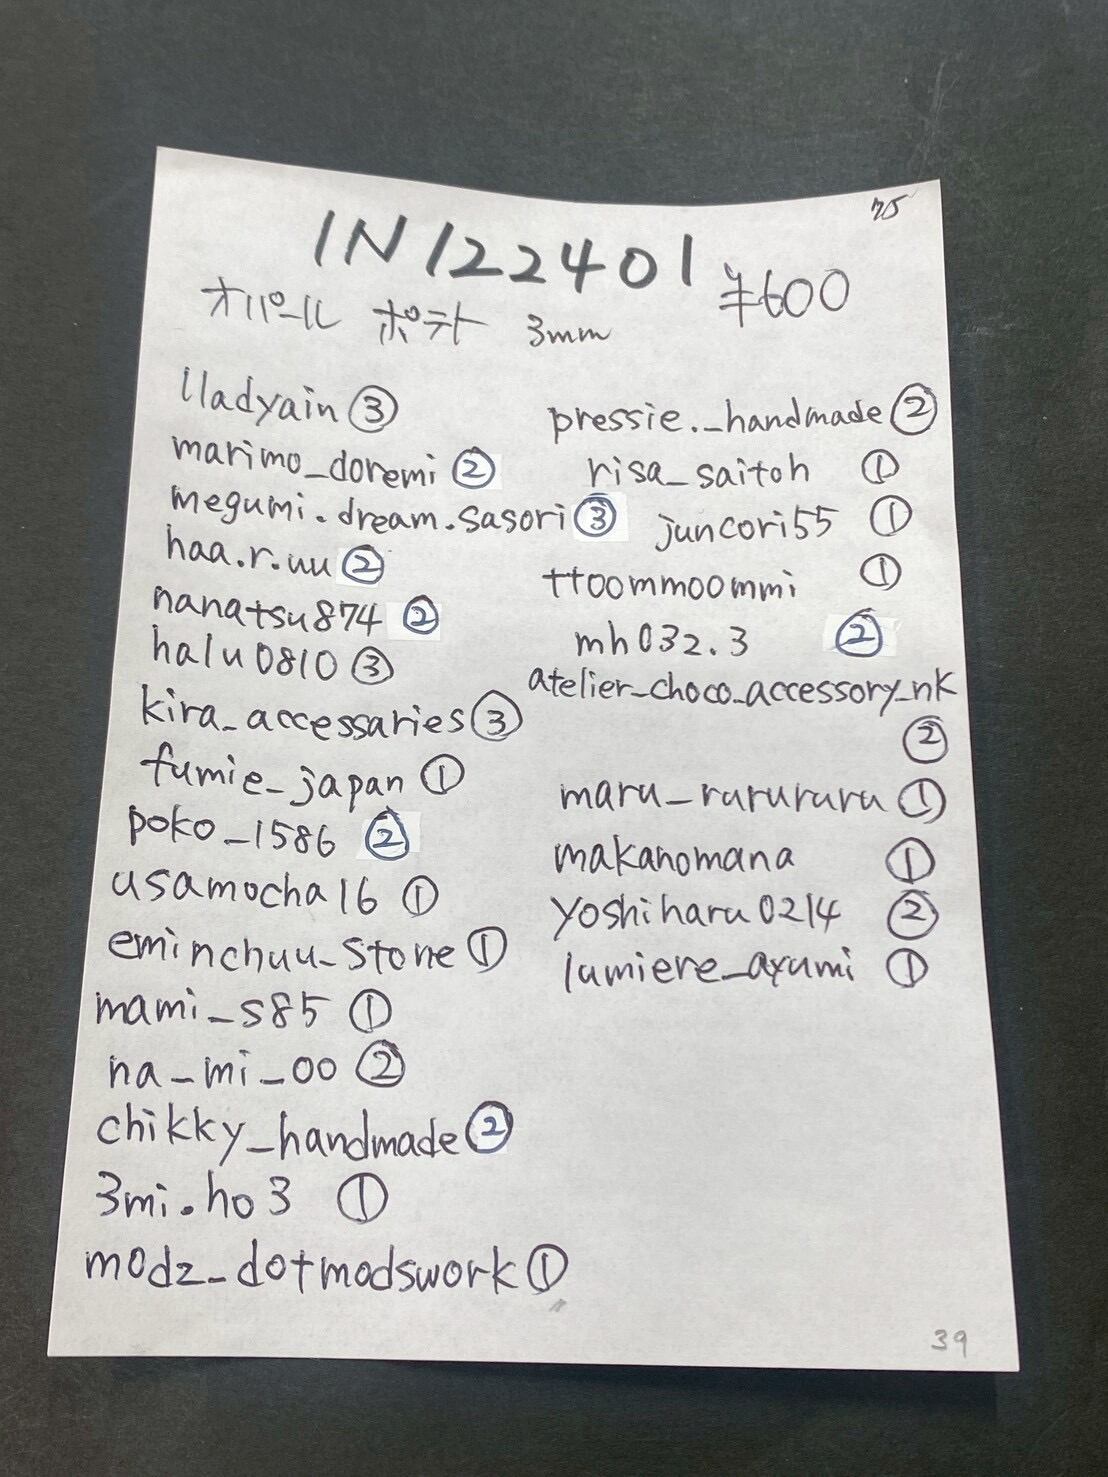 75
IN122401 ¥600
オパール ポテト 3mm
lladyain ③
marimo_doremi ②
megumi.dream.sasori ③
haa.r.uu ②
nanatsu874 ②
halu0810 ③
kira_accessaries ③
fumie_japan ①
poko_1586 ②
usamocha16 ①
eminchuu_stone ①
mami_s85 ①
na_mi_oo ②
chikky_handmade ②
3mi.ho3 ①
modz_dotmodswork ①
pressie._handmade ②
risa_saitoh ①
juncori55 ①
ttoommoommi ①
mh032.3 ②
atelier_choco_accessory_nk
②
maru_rurururu ①
makanomana ①
yoshiharu0214 ②
lumiere_ayumi ①
39